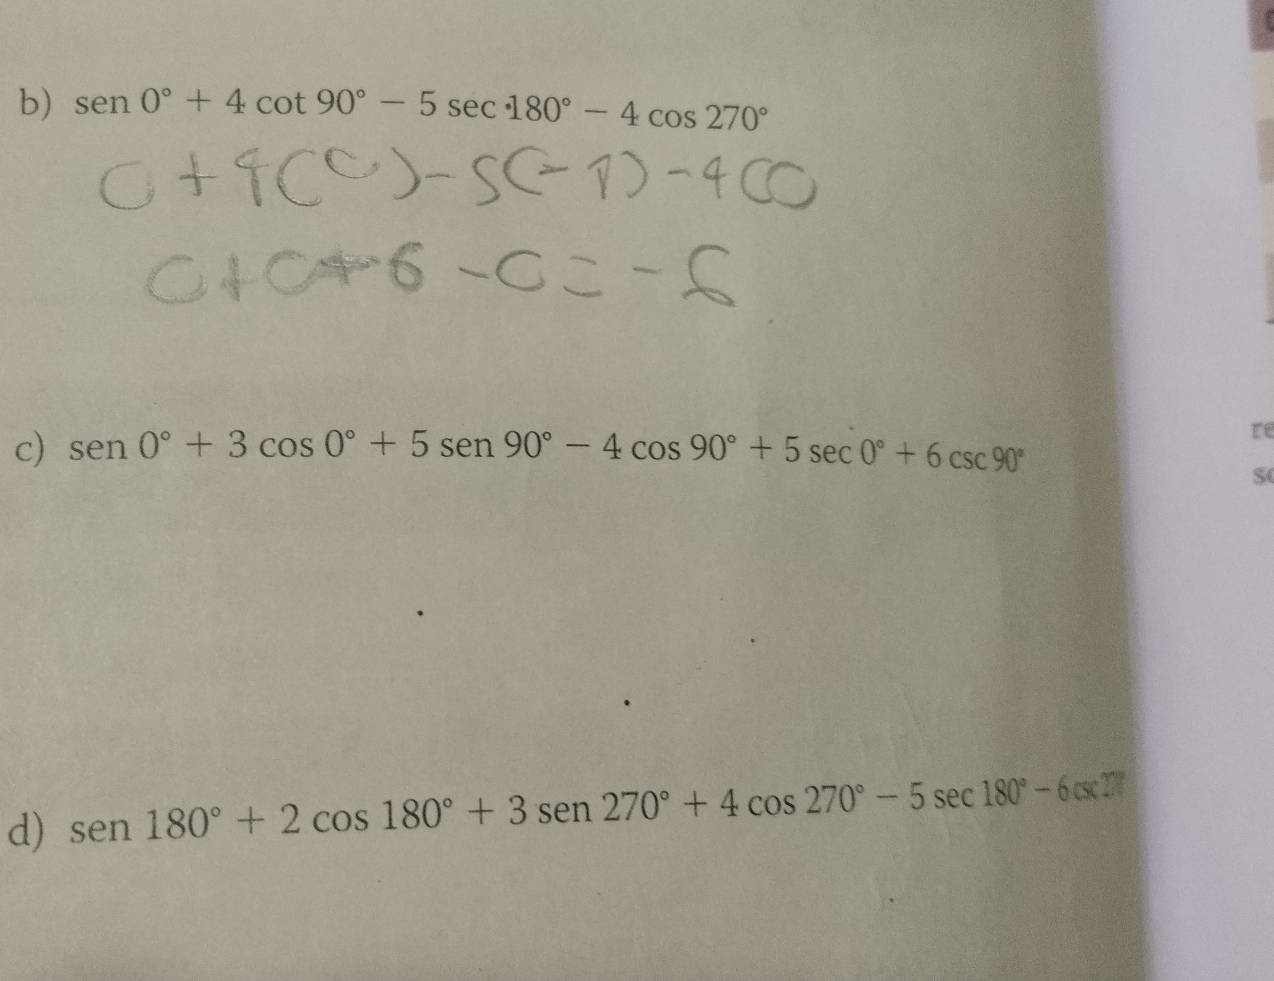 b) sen 0° + 4 cot 90° − 5 sec 180° − 4 cos 270°
0 + 4(0) - 5(-1) - 4(0)
0 + 0 + 6 - 0 = - 6
c) sen 0° + 3 cos 0° + 5 sen 90° − 4 cos 90° + 5 sec 0° + 6 csc 90°
re
so
d) sen 180° + 2 cos 180° + 3 sen 270° + 4 cos 270° − 5 sec 180° − 6 csc 270°